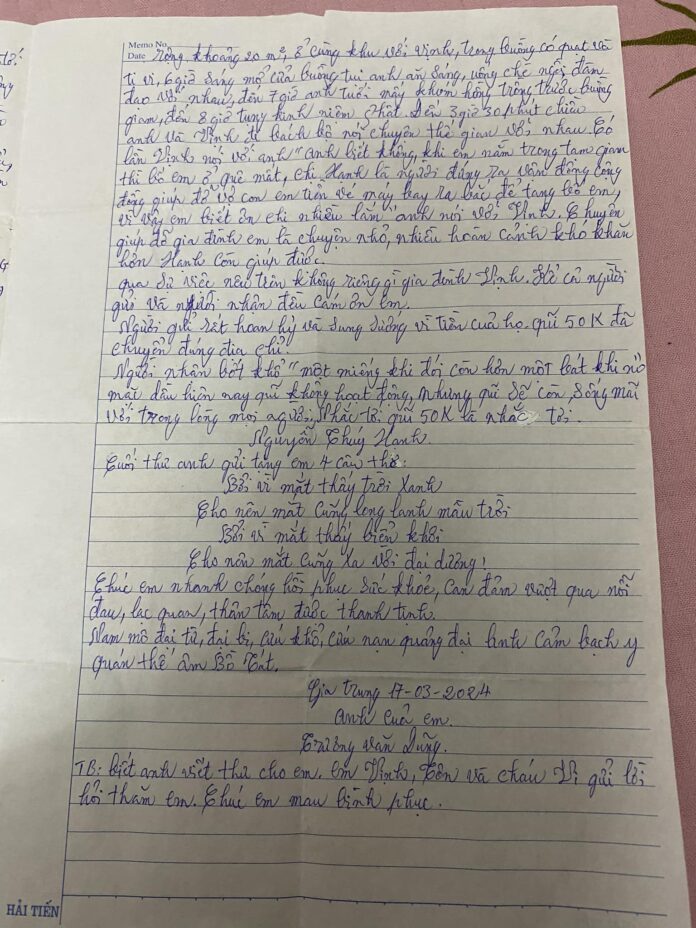 Memo No.
Date
rộng khoảng 20 m², ở cùng khu với Vịnh, trong buồng có quạt và
ti vi, 6 giờ sáng mở cửa buồng tụi anh ăn sáng, uống chè ngồi đàm
đạo với nhau, đến 7 giờ anh tưới mấy khóm hồng trồng trước buồng
giam, đến 8 giờ tụng kinh niệm Phật. Đến 3 giờ 30 phút chiều
anh và Vịnh đi bách bộ nói chuyện thế gian với nhau. Có
lần Vịnh nói với anh "Anh biết không, khi em nằm trong tạm giam
thì bố em ở quê mất, chị Hạnh là người đứng ra vận động cộng
đồng giúp đỡ vợ con em tiền vé máy bay ra bắc để tang bố em,
vì vậy em biết ơn chị nhiều lắm" anh nói với Vịnh. Chuyện
giúp đỡ gia đình em là chuyện nhỏ, nhiều hoàn cảnh khó khăn
hơn Hạnh còn giúp được.
qua sự việc nêu trên không riêng gì gia đình Vịnh. Kể cả người
gửi và người nhận đều cảm ơn em.
Người gửi rất hoan hỷ và sung sướng vì tiền của họ quĩ 50K đã
chuyển đúng địa chỉ.
Người nhận bớt khổ "một miếng khi đói còn hơn một bát khi no
mặc dầu hiện nay quĩ không hoạt động, nhưng quĩ sẽ còn sống mãi
với trong lòng mọi người, Nhắc tới quĩ 50K là nhắc tới.
Nguyễn Thúy Hạnh.
Cuối thư anh gửi tặng em 4 câu thơ:
Bởi vì mắt thấy trời xanh
Cho nên mắt cũng long lanh màu trời
Bởi vì mắt thấy biển khơi
Cho nên mắt cũng xa vời đại dương!
Chúc em nhanh chóng hồi phục sức khỏe, can đảm vượt qua nỗi
đau, lạc quan, thân tâm được thanh tịnh.
Nam mô đại từ, đại bi, cứu khổ, cứu nạn quảng đại linh cảm bạch y
quán thế âm Bồ Tát.
Gia trung 17-03-2024
Anh của em.
Trương văn Dũng.
TB: biết anh viết thư cho em. em Vịnh, Tôn và cháu Vi gửi lời
hỏi thăm em. Chúc em mau bình phục.
HẢI TIẾN